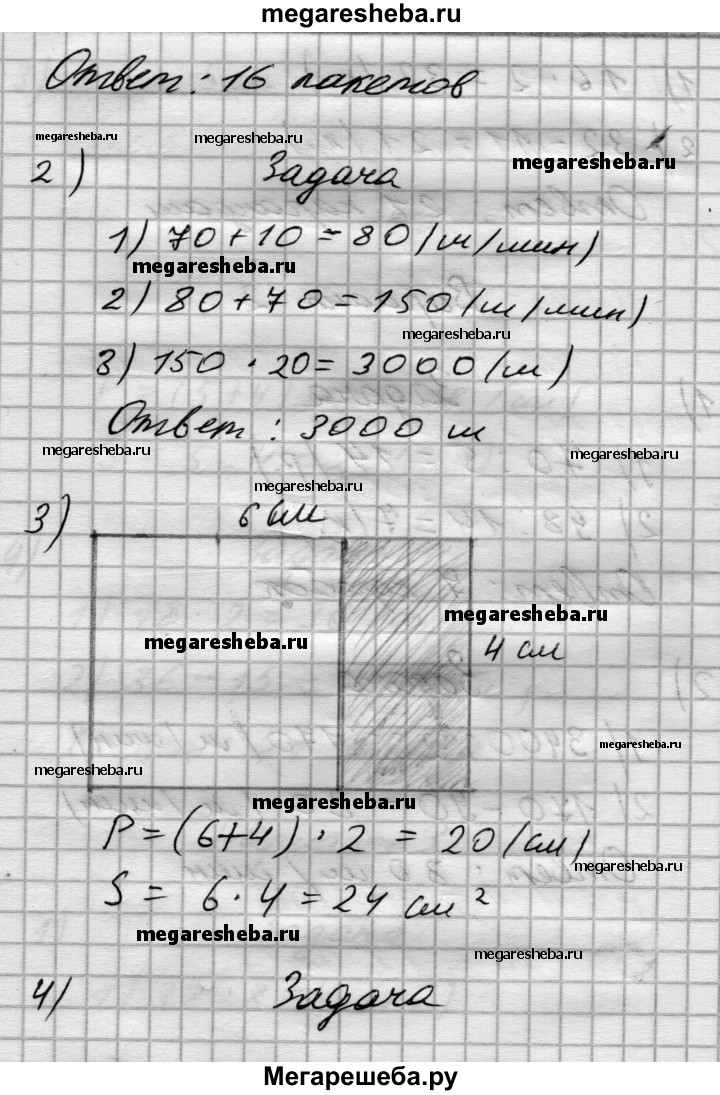 megaresheba.ru
Ответ: 16 пакетов
megaresheba.ru megaresheba.ru megaresheba.ru
2) Задача
1) 70 + 10 = 80 (м/мин)
megaresheba.ru
2) 80 + 70 = 150 (м/мин)
megaresheba.ru
3) 150 · 20 = 3000 (м)
Ответ: 3000 м
megaresheba.ru megaresheba.ru
megaresheba.ru
3) 6 см
megaresheba.ru
megaresheba.ru 4 см
megaresheba.ru
megaresheba.ru
megaresheba.ru
P = (6+4) · 2 = 20 (см)
megaresheba.ru
S = 6 · 4 = 24 см²
megaresheba.ru
megaresheba.ru
4) Задача
Мегарешеба.ру